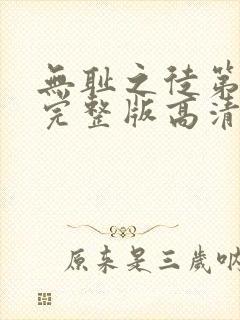 無耻之徒第
完整版高清
原来是三歲吶